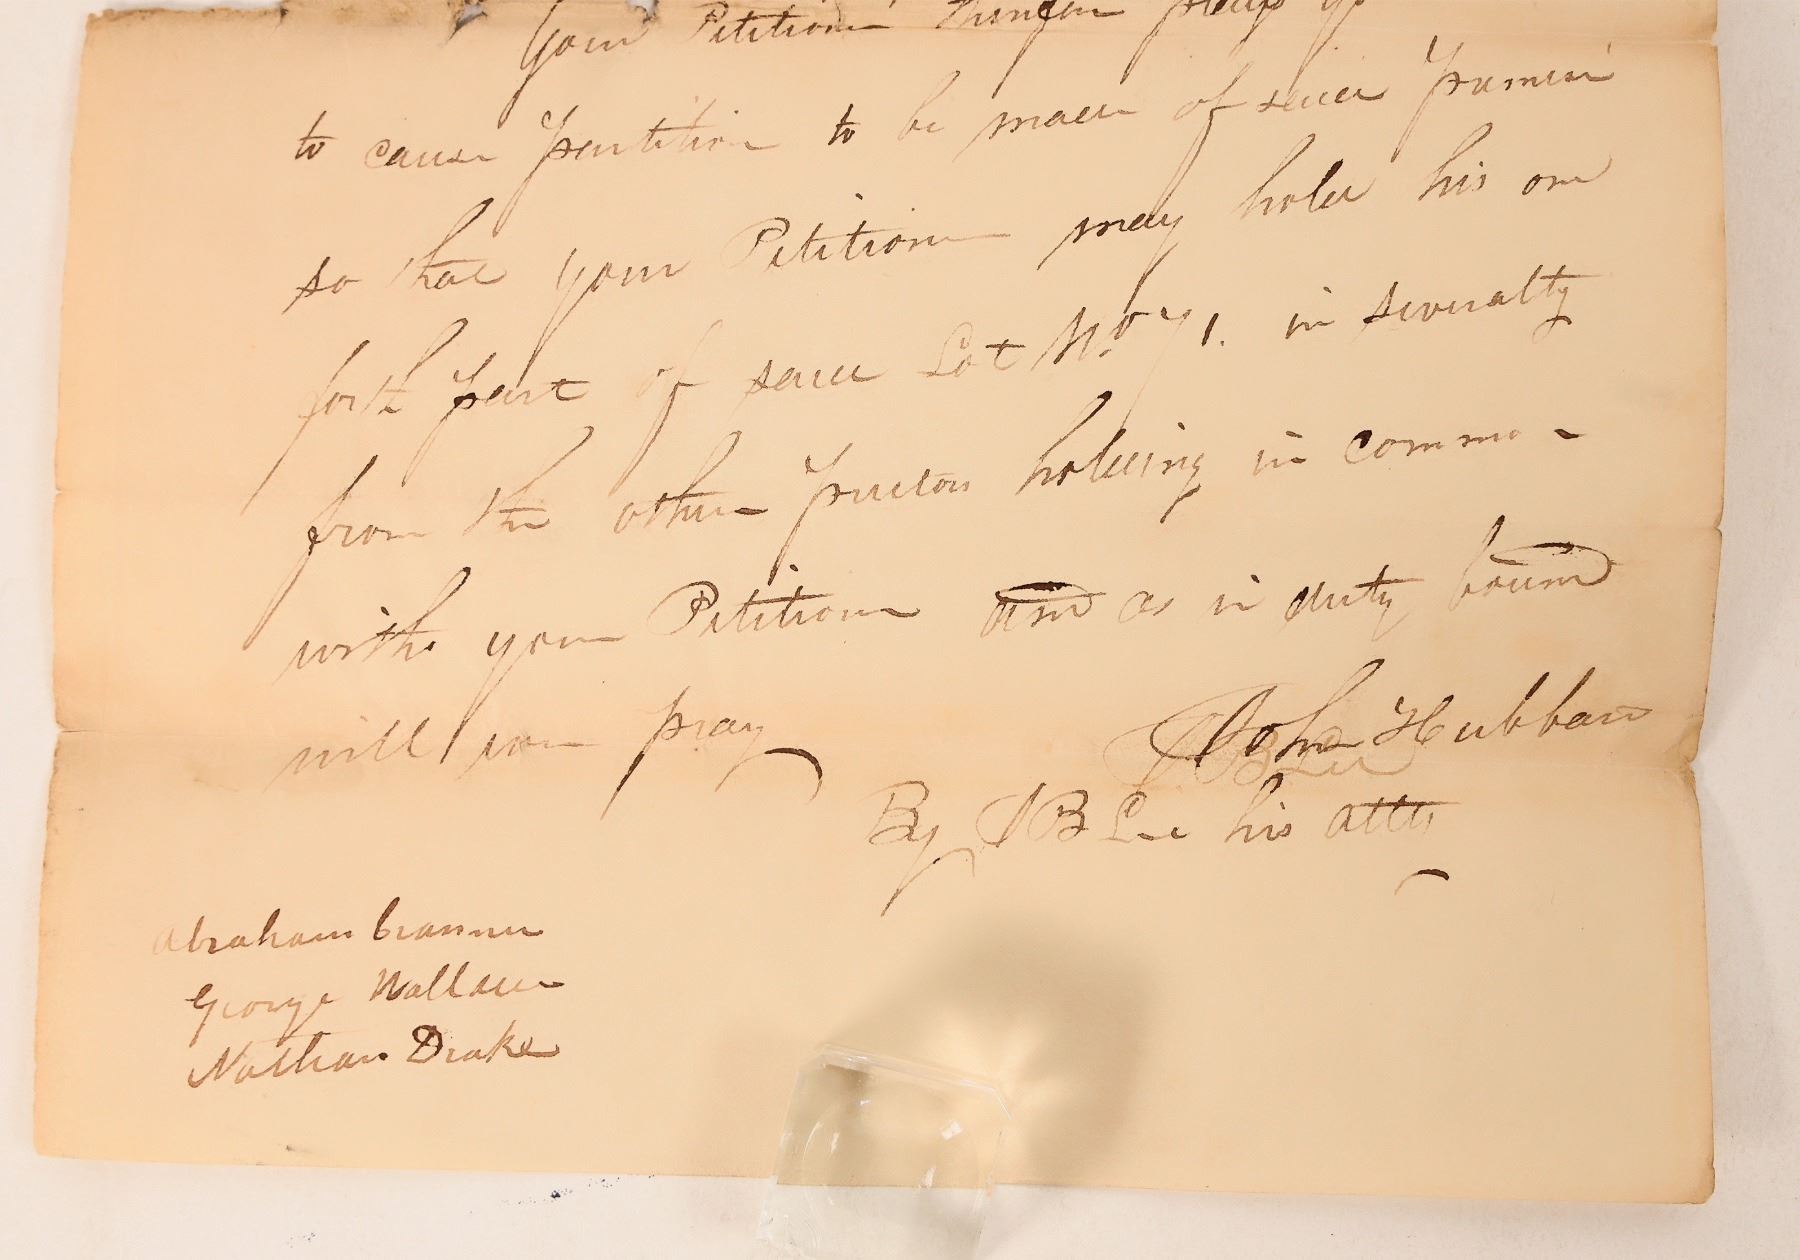 Your Petitioner therefore prays yo
to cause partition to be made of said premises
so that your Petitioner may hold his one
forth part of said Lot No. 71. in severalty
from the other
holding in common
with your Petitioner and as in duty bound
will ever pray
John Hubbard
By J B Lee his atty
Abraham
George Wallace
Nathan Drake